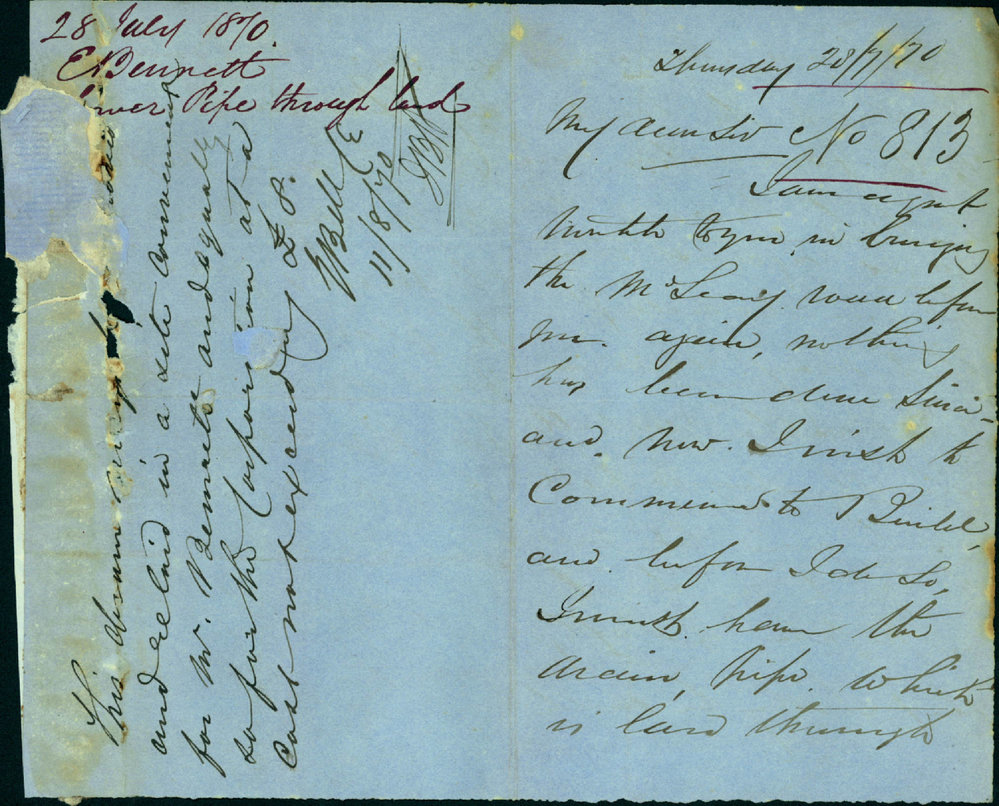 28 July 1870.
E Bennett
Sewer Pipe through land
This drain may be
and relaid in a site convenient
for Mr. Bennett and equally
so for the Corporation at a
Cost not exceeding £8.
E Bell CE
11/8/70
Thursday 28/7/70
My dear Sir No 813
I am again
to you in bringing
the McLeary road before
me again, nothing
has been done Since
and, now I wish to
Commence to Build,
and before I do So,
I must have the
drain, pipe which
is laid through